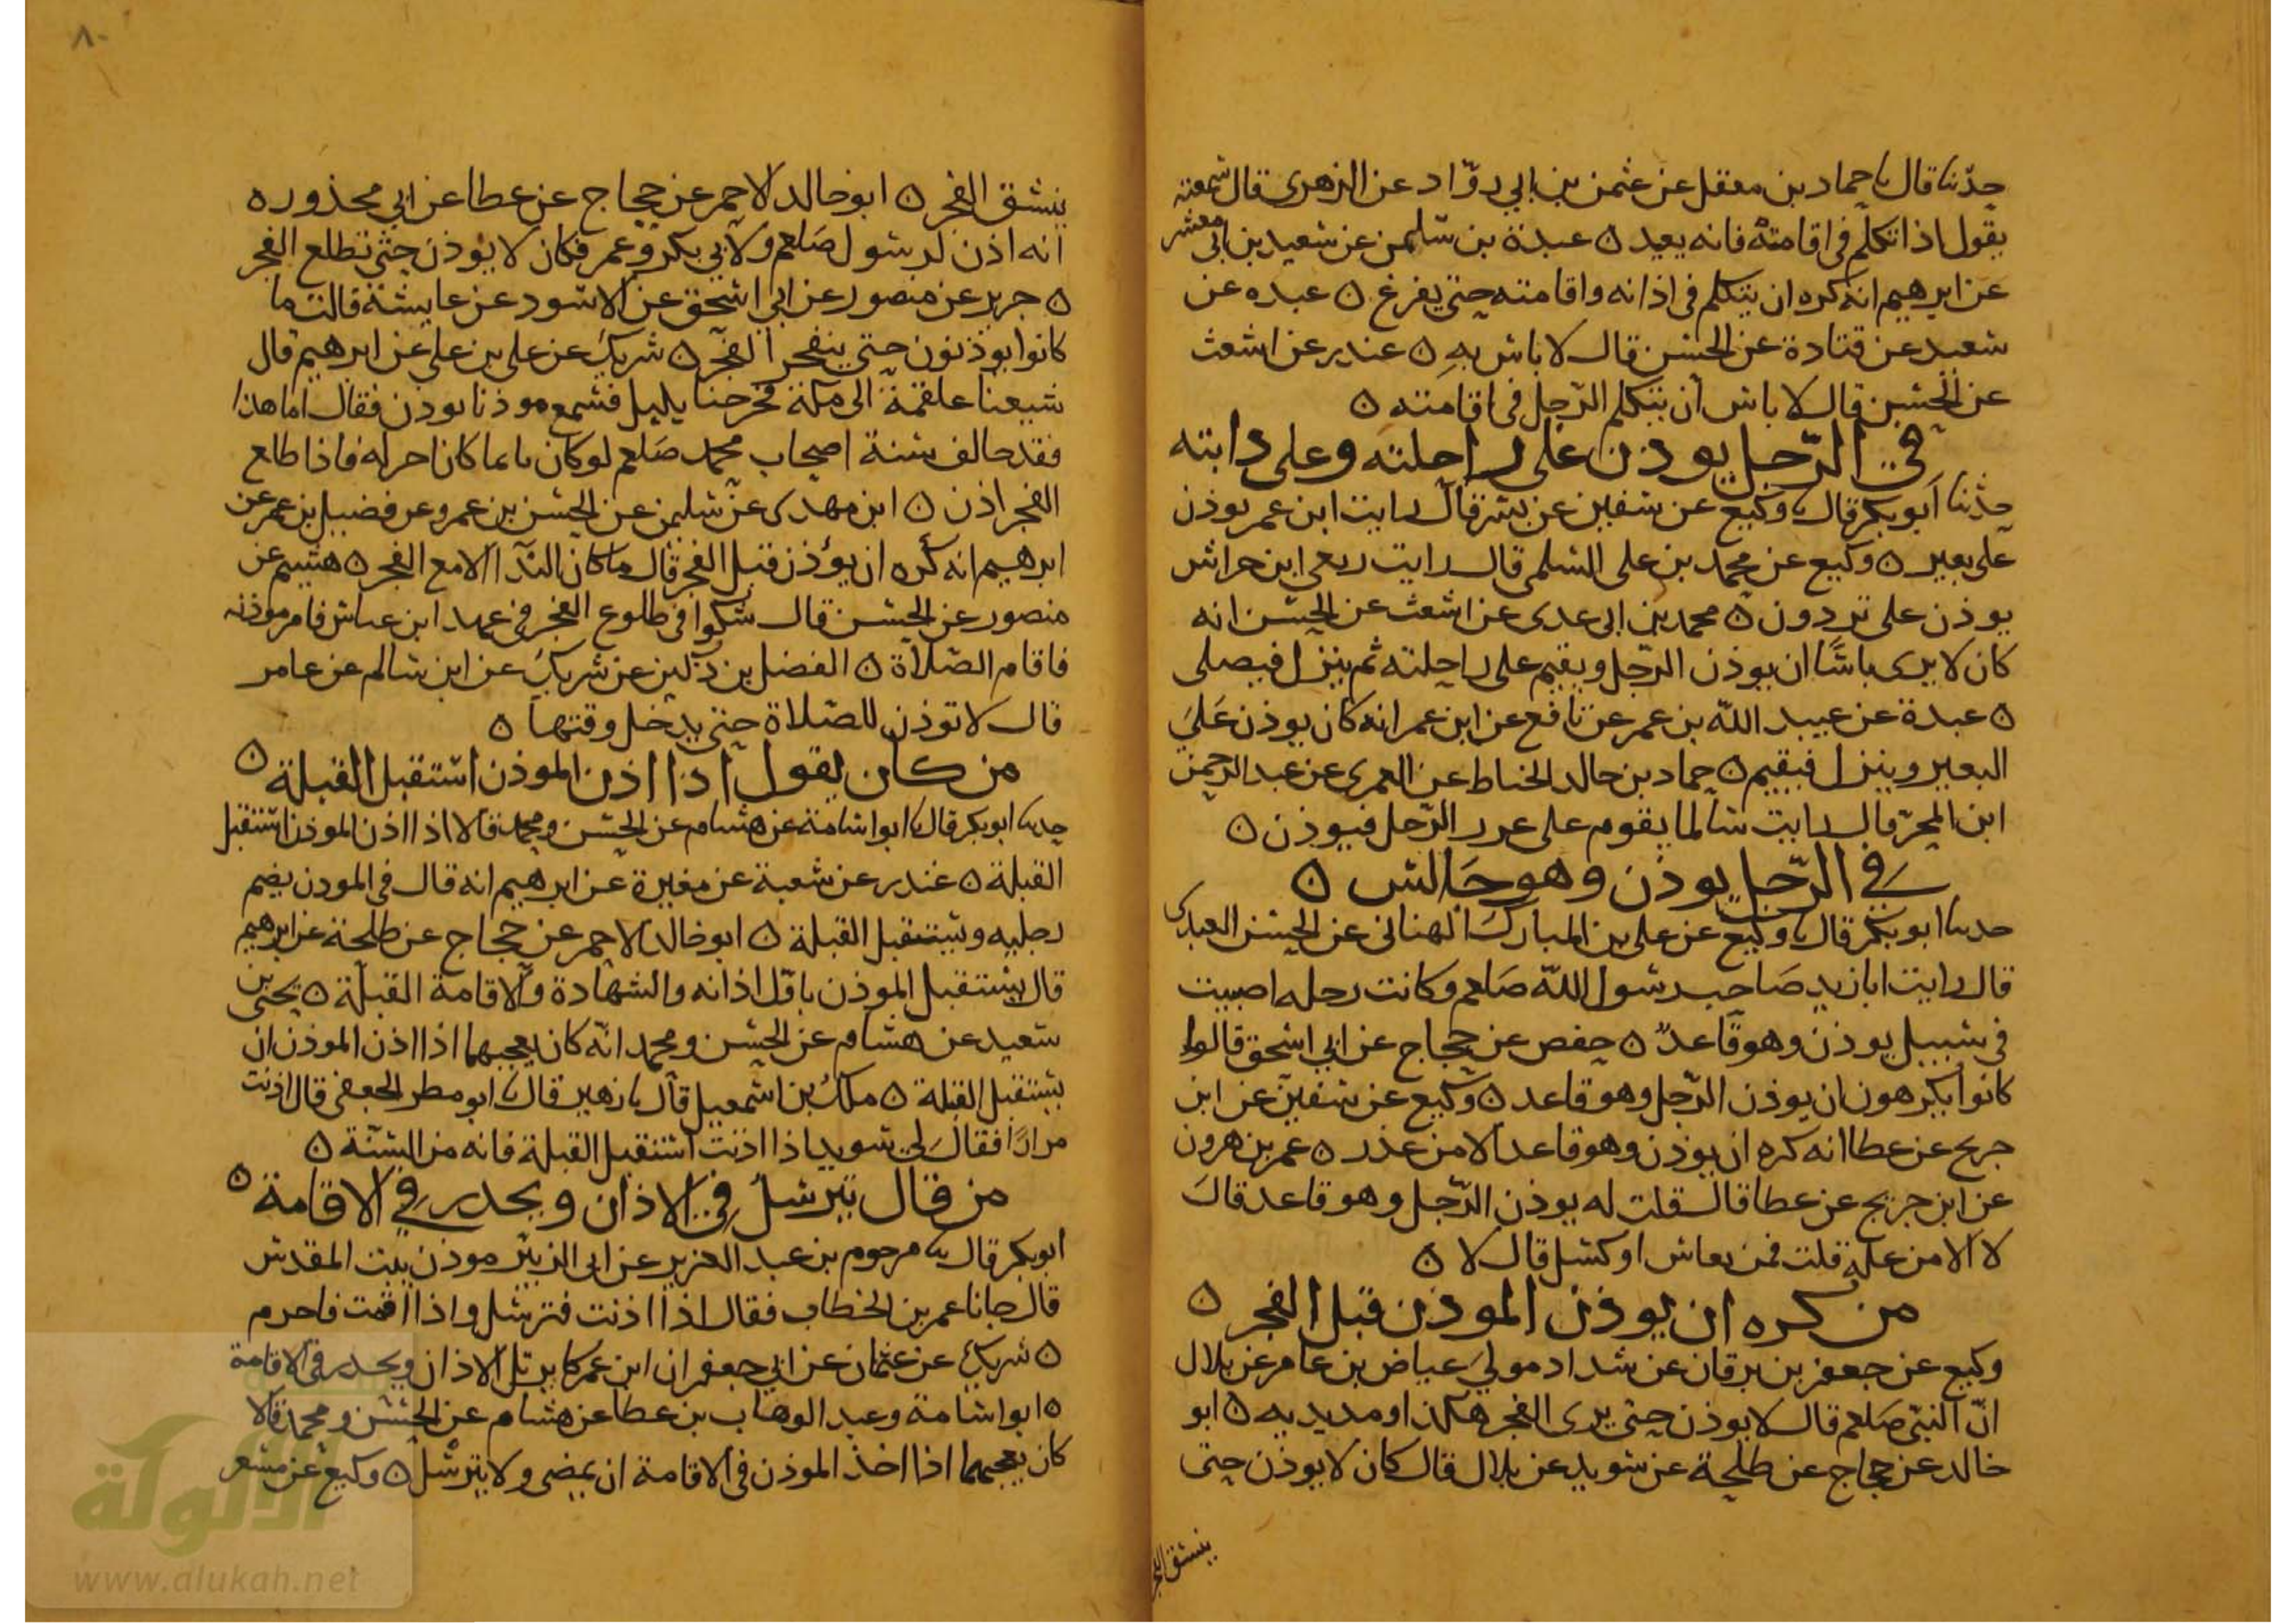 حدثنا قال نا حماد بن معقل عن عثمن بن ابي روّاد عن الزهرى قال سمعته
يقول اذا تكلم فى اقامته فانه يعيد ٥ عبدة بن سليمن عن سعيد بن ابى معشر
عن ابرهيم انه كره ان يتكلم فى اذانه واقامته حتى يفرغ ٥ عبده عن
سعيد عن قتادة عن الحسن قال لا باس به ٥ غندر عن اشعث
عن الحسن قال لا باس ان يتكلم الرّجل فى اقامته ٥
في الرّجل يوذن على راحلته وعلى دابته
حدثنا ابو بكر قال نا وكيع عن سفين عن نسير قال رايت ابن عمر يوذن
على بعير ٥ وكيع عن محمد بن على السلمى قال رايت ربعى ابن حراش
يوذن على بردون ٥ محمد بن ابى عدى عن اشعث عن الحسن انه
كان لا يرى باسًا ان يوذن الرّجل ويقيم على راحلته ثم ينزل فيصلى
٥ عبدة عن عبيد الله بن عمر عن نافع عن ابن عمر انه كان يوذن على
البعير وينزل فيقيم ٥ حماد بن خالد الخياط عن العمرى عن عبد الرحمن
ابن المجبّر قال رايت سالما يقوم على غرز الرّحل فيوذن ٥
في الرّجل يوذن وهو جالس ٥
حدثنا ابو بكر قال نا وكيع عن على بن المبارك الهنائى عن الحسن العبدى
قال رايت ابا زيد صاحب رسول الله صلعم وكانت رجله اصيبت
فى سبيل يوذن وهو قاعد ٥ حفص عن حجاج عن ابى اسحق قال
كانوا يكرهون ان يوذن الرّجل وهو قاعد ٥ وكيع عن سفين عن ابن
جريج عن عطا انه كره ان يوذن وهو قاعد الا من عذر ٥ عمر بن هرون
عن ابن جريج عن عطا قال قلت له يوذن الرّجل وهو قاعد قال
لا الا من علة قلت فمن نعاس او كسل قال لا ٥
من كره ان يوذن الموذن قبل الفجر ٥
وكيع عن جعفر بن برقان عن شداد مولى عياض بن عامر عن بلال
انّ النبى صلعم قال لا يوذن حتى يرى الفجر هكذا ومد يديه ٥ ابو
خالد عن حجاج عن طلحة عن سويد عن بلال قال كان لا يوذن حتى
ينشق الفجر
٨٠
ينشق الفجر ٥ ابو خالد الاحمر عن حجاج عن عطا عن ابى محذوره
انه اذن لرسول صلعم ولابى بكر وعمر فكان لا يوذن حتى تطلع الفجر
٥ جرير عن منصور عن ابى اسحق عن الاسود عن عايشة قالت ما
كانوا يوذنون حتى ينفجر الفجر ٥ شريك عن على بن على عن ابرهيم قال
شيعنا علقمة الى مكة فخرجنا بليل فسمع موذنا يوذن فقال اما هذا
فقد خالف سنة اصحاب محمد صلعم لو كان نائما كان خير له فاذا طلع
الفجر اذن ٥ ابن مهدى عن سليمن عن الحسن بن عمرو عن فضيل بن عمر عن
ابرهيم انه كره ان يؤذن قبل الفجر قال ما كان الندآ الا مع الفجر ٥ هشيم عن
منصور عن الحسن قال شكوا فى طلوع الفجر فى عهد ابن عباس فامر موذنه
فاقام الصّلاة ٥ الفضل بن دكين عن شريك عن ابن سالم عن عامر
قال لا توذن للصّلاة حتى يدخل وقتها ٥
من كان يقول اذا اذن الموذن استقبل القبلة ٥
حدثنا ابو بكر قال نا ابو اسامة عن هشام عن الحسن ومحمد قالا اذا اذن الموذن استقبل
القبلة ٥ غندر عن شعبة عن مغيرة عن ابرهيم انه قال فى الموذن يضم
رجليه ويستقبل القبلة ٥ ابو خالد الاحمر عن حجاج عن طلحة عن ابرهيم
قال يستقبل الموذن باوّل اذانه والشهادة والاقامة القبلة ٥ يحيى بن
سعيد عن هشام عن الحسن ومحمد انه كان يعجبهما اذا اذن الموذن ان
يستقبل القبلة ٥ ملك بن اسمعيل قال نا زهير قال نا ابو مطر الجعفى قال اذنت
مرارًا فقال لى سويد اذا اذنت استقبل القبلة فانه من السّنّة ٥
من قال يترسل فى الاذان ويحدر في الاقامة ٥
ابو بكر قال نا مرحوم بن عبد العزيز عن ابى الزبير موذن بيت المقدس
قال جانا عمر بن الخطاب فقال اذا اذنت فترسل واذا اقمت فاحرم
٥ شريك عن عثمان عن ابى جعفر ان ابن عمر كا يرتل الاذان ويحدر فى الاقامة
٥ ابو اسامة وعبد الوهاب بن عطا عن هشام عن الحسن ومحمد قالا
كان يعجبهما اذا اخذ الموذن فى الاقامة ان يمضى ولا يترسل ٥ وكيع عن مسعر
الألوكة
www.alukah.net